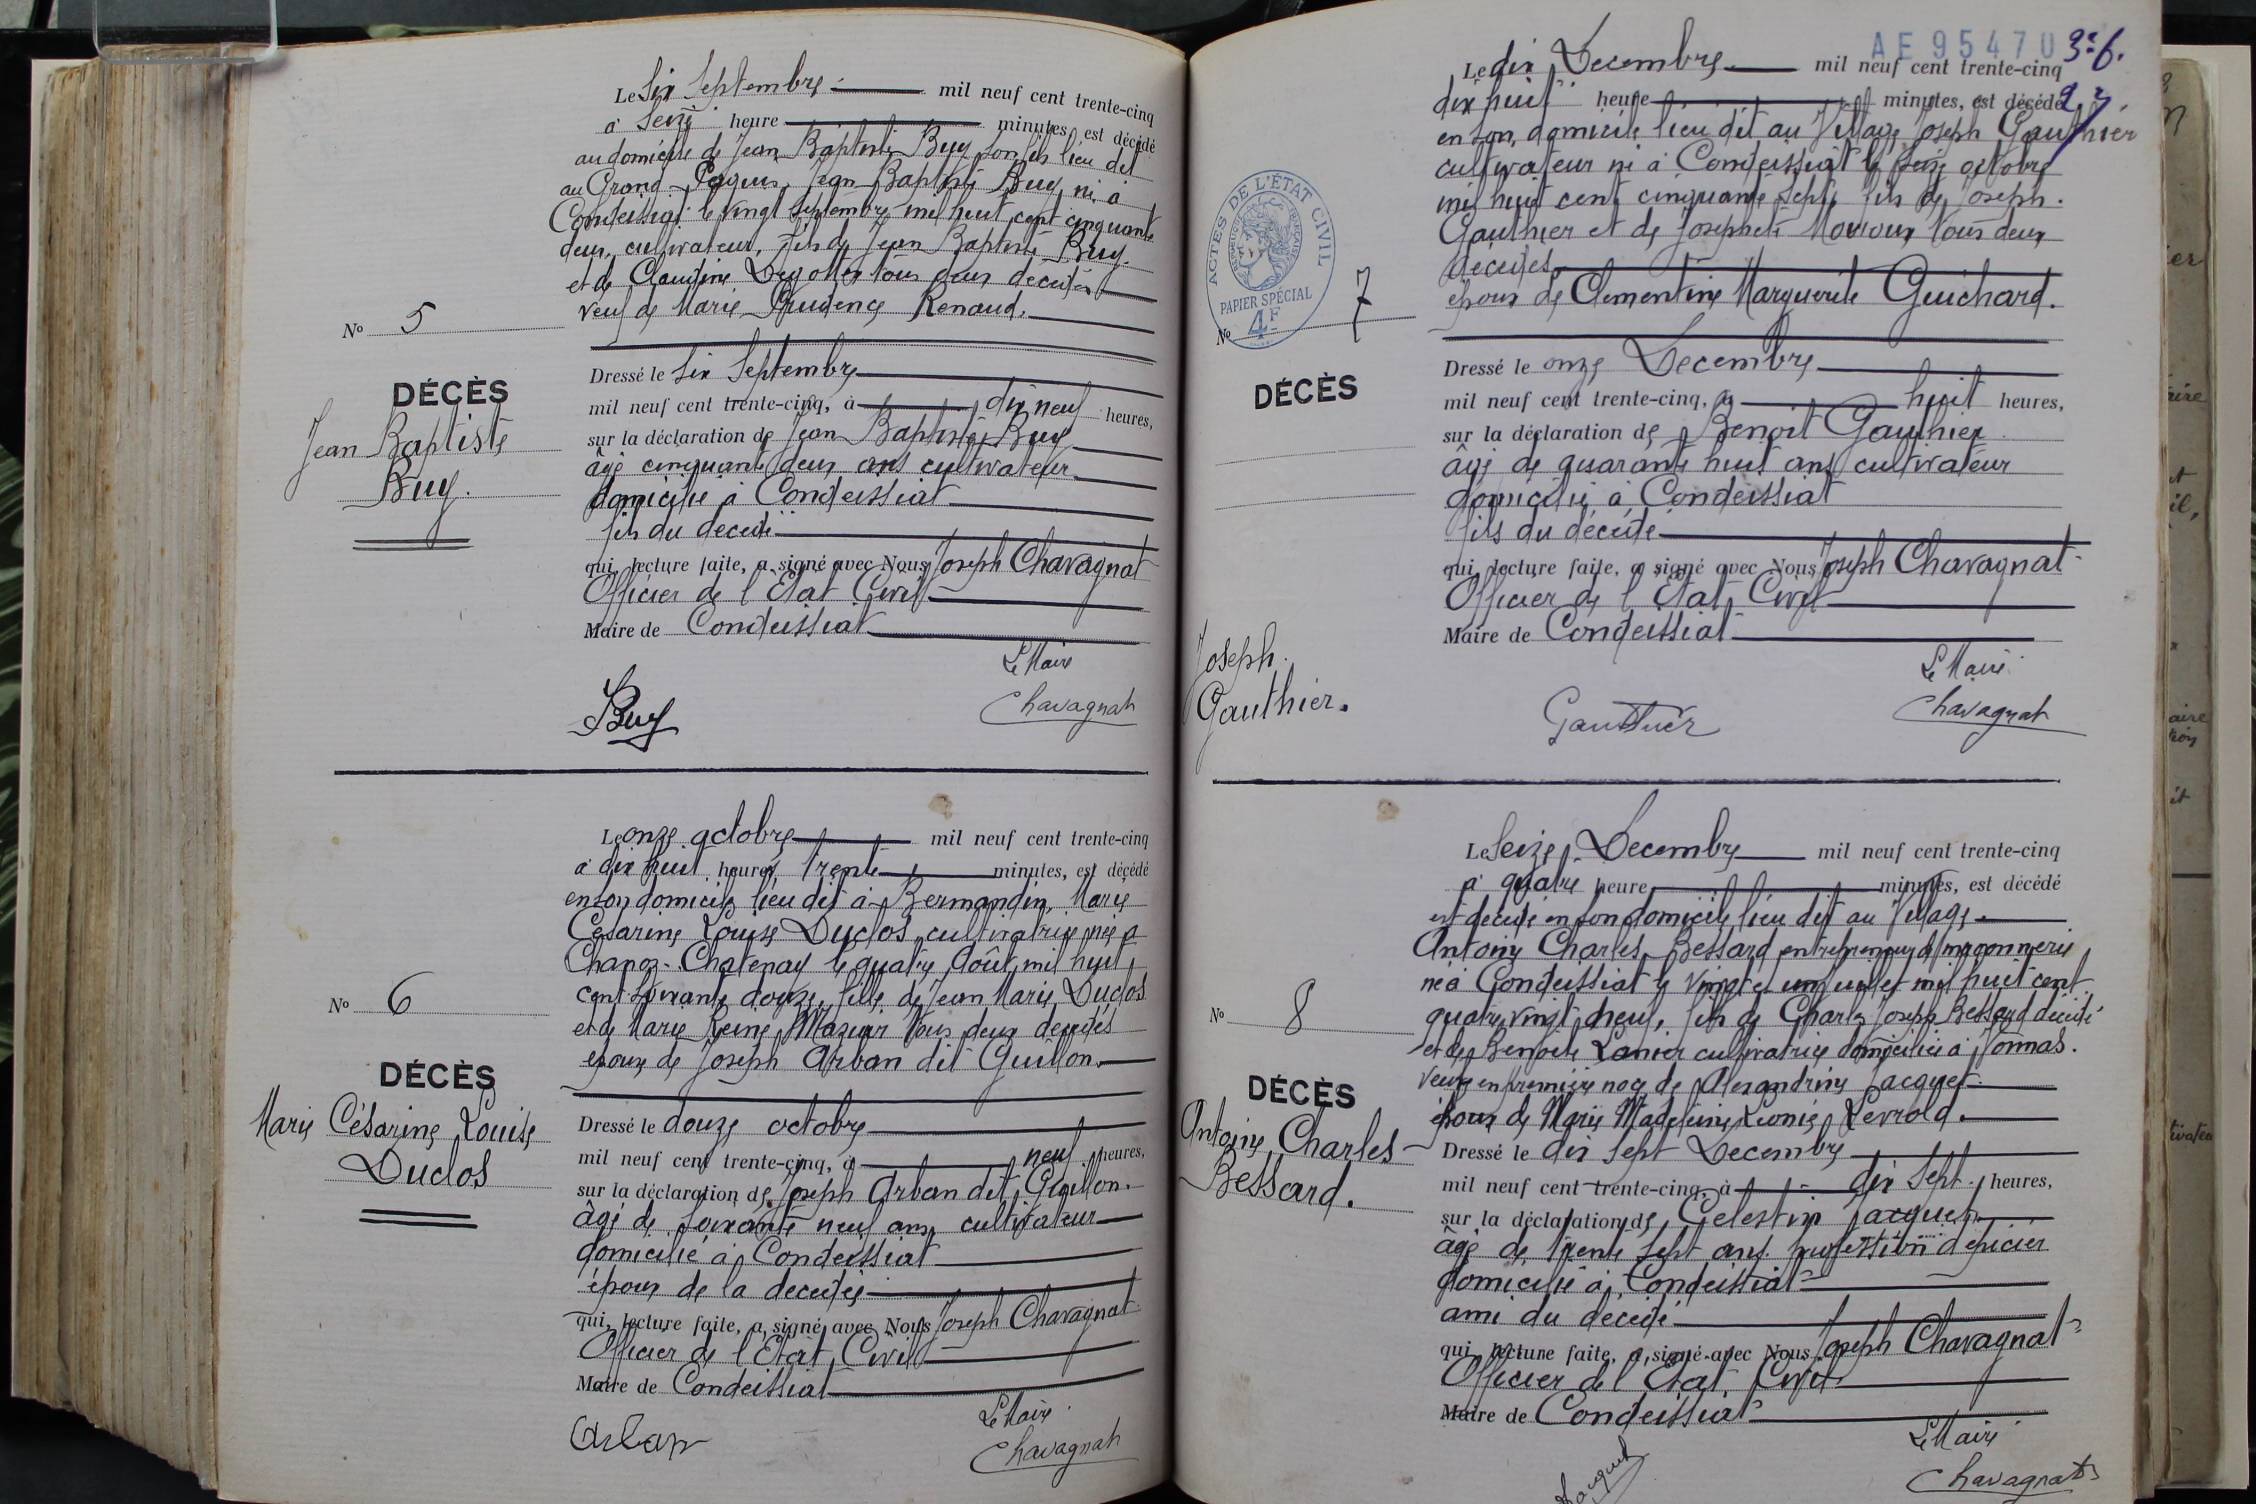 Le six Septembre mil neuf cent trente-cinq
à Seize heure minutes, est décédé
au domicile de Jean Baptiste Buy son fils lieu dit
au Grand Paquis, Jean Baptiste Buy, né à
Condeissiat le vingt septembre mil huit cent cinquante
deux, cultivateur, fils de Jean Baptiste Buy.
et de Claudine tous deux décédés
veuf de Marie Prudence Renaud.
No 5
DÉCÈS
Jean Baptiste
Buy.
Dressé le six Septembre
mil neuf cent trente-cinq, à dix neuf heures,
sur la déclaration de Jean Baptiste Buy
âgé cinquante deux ans cultivateur
domicilié à Condeissiat
fils du décédé
qui, lecture faite, a signé avec Nous Joseph Chavagnat
Officier de l'Etat Civil
Maire de Condeissiat
Le Maire
Buy
Chavagnat
Le onze octobre mil neuf cent trente-cinq
à dix huit heures trente minutes, est décédé
en son domicile lieu dit à Bermandin, Marie
Césarine Louise Duclos cultivatrice née à
Chanoz-Chatenay le quatre Août mil huit
cent soixante douze, fille de Jean Marie Duclos
et de Marie Reine Mazuir tous deux décédés
épouse de Joseph Arban dit Guillon.
No 6
DÉCÈS
Marie Césarine Louise
Duclos
Dressé le douze octobre
mil neuf cent trente-cinq, à neuf heures,
sur la déclaration de Joseph Arban dit Guillon.
âgé de soixante neuf ans, cultivateur
domicilié à Condeissiat
époux de la décédée
qui, lecture faite, a signé avec Nous Joseph Chavagnat
Officier de l'Etat Civil
Maire de Condeissiat
Le Maire
Arban
Chavagnat
AE 95470 3e f.
Le dix Decembre mil neuf cent trente-cinq
dix huit heure minutes, est décédé
en son domicile lieu dit au Village Joseph Gauthier
cultivateur né à Condeissiat le seize octobre
mil huit cent cinquante sept, fils de Joseph.
Gauthier et de Josephte tous deux
décédés.
époux de Clementine Marguerite Guichard.
ACTES DE L'ÉTAT CIVIL
RÉPUBLIQUE FRANÇAISE
PAPIER SPÉCIAL
4F
No 7
DÉCÈS
Joseph
Gauthier.
Dressé le onze Decembre
mil neuf cent trente-cinq, à huit heures,
sur la déclaration de Benoit Gauthier
âgé de quarante huit ans cultivateur
domicilié à Condeissiat
fils du décédé
qui, lecture faite, a signé avec Nous Joseph Chavagnat
Officier de l'Etat Civil
Maire de Condeissiat
Le Maire
Gauthier
Chavagnat
Le Seize Decembre mil neuf cent trente-cinq
à quatre heure minutes, est décédé
est décédé en son domicile lieu dit au Village.
Antoine Charles Bessard entrepreneur de maçonnerie
né à Condeissiat le vingt et un juillet mil huit cent
quatre vingt neuf, fils de Charles Joseph Bessard décédé
et de Benoite Lanier cultivatrice domiciliée à Vonnas.
veuf en première noce de Alexandrine Jacquet.
époux de Marie Madeleine Léonie Levrold.
No 8
DÉCÈS
Antoine Charles
Bessard.
Dressé le dix sept Decembre
mil neuf cent trente-cinq, à dix sept heures,
sur la déclaration de Celestin Jacquet
âgé de trente sept ans. profession d'épicier
domicilié à Condeissiat
ami du décédé
qui, lecture faite, a signé avec Nous Joseph Chavagnat
Officier de l'Etat Civil
Maire de Condeissiat
Le Maire
Jacquet
Chavagnat